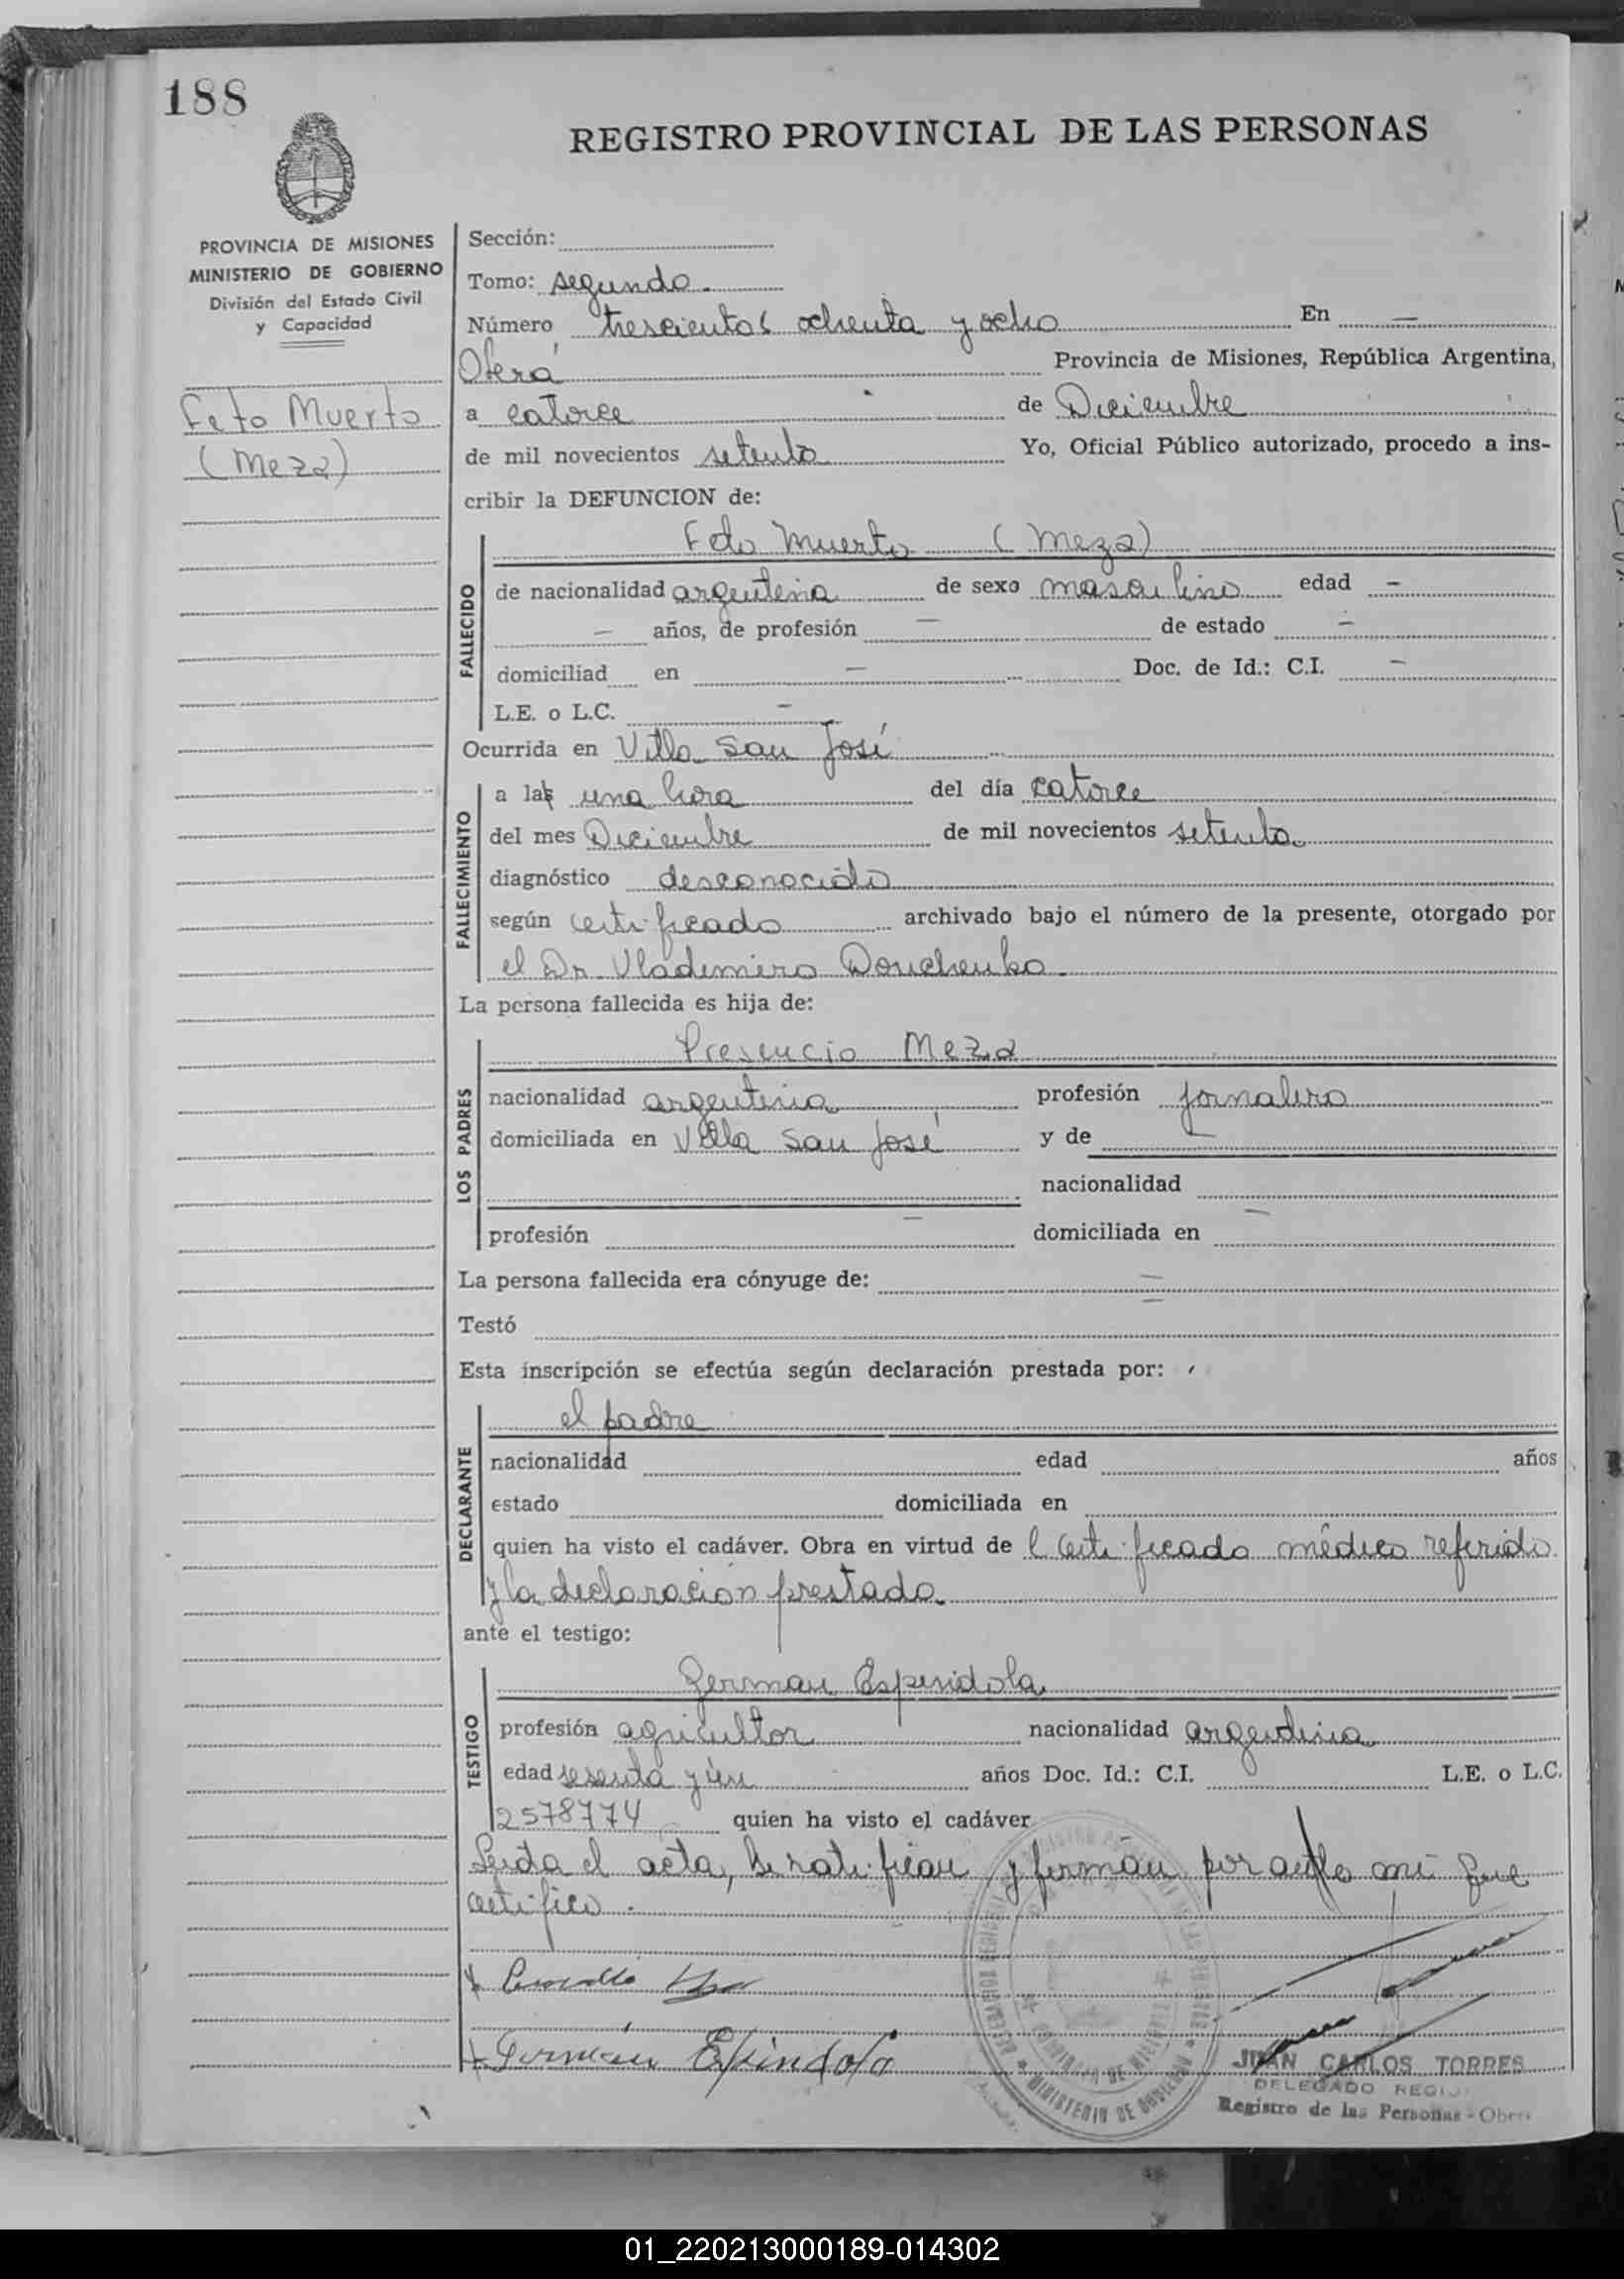 188
REGISTRO PROVINCIAL DE LAS PERSONAS
PROVINCIA DE MISIONES
MINISTERIO DE GOBIERNO
División del Estado Civil
y Capacidad
Feto Muerto
(Meza)
Sección:
Tomo: segundo.
Número trescientos ochenta y ocho En —
Oberá Provincia de Misiones, República Argentina,
a catorce de Diciembre
de mil novecientos setenta Yo, Oficial Público autorizado, procedo a ins-
cribir la DEFUNCION de:
Feto Muerto (Meza)
FALLECIDO
de nacionalidad argentina de sexo masculino edad —
— años, de profesión — de estado —
domiciliad en — Doc. de Id.: C.I. —
L.E. o L.C. —
Ocurrida en Villa San José
FALLECIMIENTO
a las una hora del día catorce
del mes Diciembre de mil novecientos setenta
diagnóstico desconocido
según certificado archivado bajo el número de la presente, otorgado por
el Dr. Vlademiro Douchenko.
La persona fallecida es hija de:
LOS PADRES
Presencio Meza
nacionalidad argentina profesión jornalero
domiciliada en Villa San José y de
nacionalidad
profesión — domiciliada en —
La persona fallecida era cónyuge de: —
Testó —
Esta inscripción se efectúa según declaración prestada por:
DECLARANTE
el padre
nacionalidad edad años
estado domiciliada en
quien ha visto el cadáver. Obra en virtud de l certificado médico referido
y la declaración prestada.
ante el testigo:
TESTIGO
German Espindola
profesión agricultor nacionalidad argentina
edad sesenta y un años Doc. Id.: C.I. L.E. o L.C.
2578774 quien ha visto el cadáver
Leida el acta, la ratifican y firman por ante mi que
certifico.
Germán Espindola
MINISTERIO DE GOBIERNO
PROVINCIA DE MISIONES
JUAN CARLOS TORRES
DELEGADO REGI
Registro de las Personas - Oberá
01_220213000189-014302